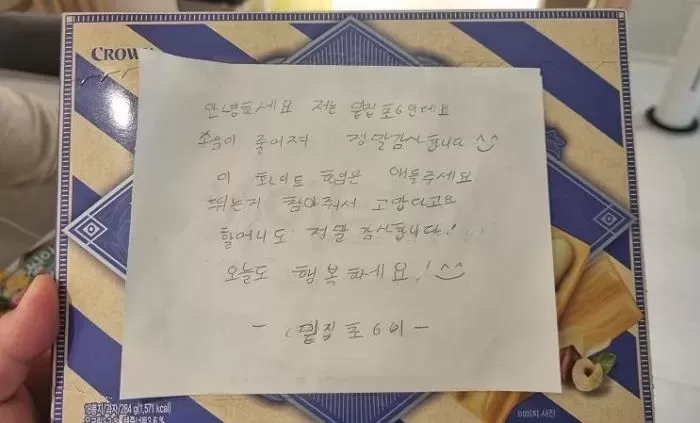 CROWN
안녕하세요 저는 옆집 초6인데요
소음이 줄어져 정말감사합니다 ^^
이 화이트 하임은 애들주세요
뛰는거 참아줘서 고맙다고요
할머니도 정말 감사합니다!
오늘도 행복하세요! ^^
- 옆집 초6이 -
18봉지/과자/284 g(1,571 kcal)
이미지 사진